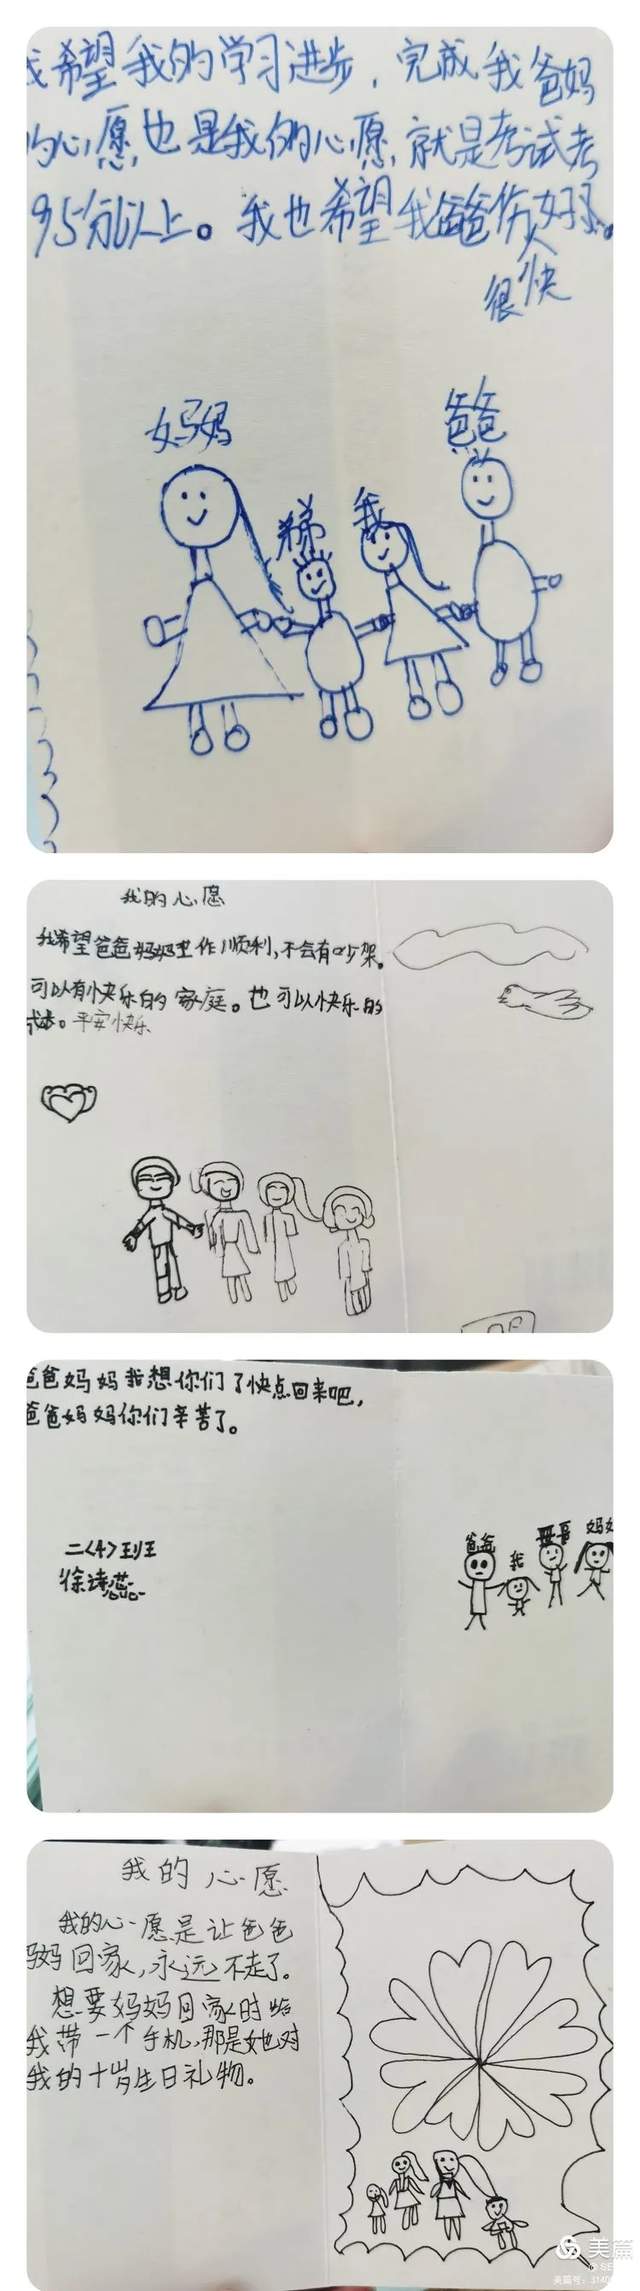 我希望我的学习进步，完成我爸妈
的心愿，也是我的心愿，就是考试考
95分以上。我也希望我爸爸伤好了。
很快
妈妈
弟弟
我
爸爸
我的心愿
我希望爸爸妈妈工作顺利，不会有吵架。
可以有快乐的家庭。也可以快乐的
成长。平安快乐
爸爸妈妈我想你们了快点回来吧，
爸爸妈妈你们辛苦了。
二〈4〉班
徐诗蕊
爸爸
我
哥哥
妈妈
我的心愿
我的心愿是让爸爸
妈妈回家，永远不走了。
想要妈妈回家时给
我带一个手机，那是她对
我的十岁生日礼物。
美篇
美篇号：3140